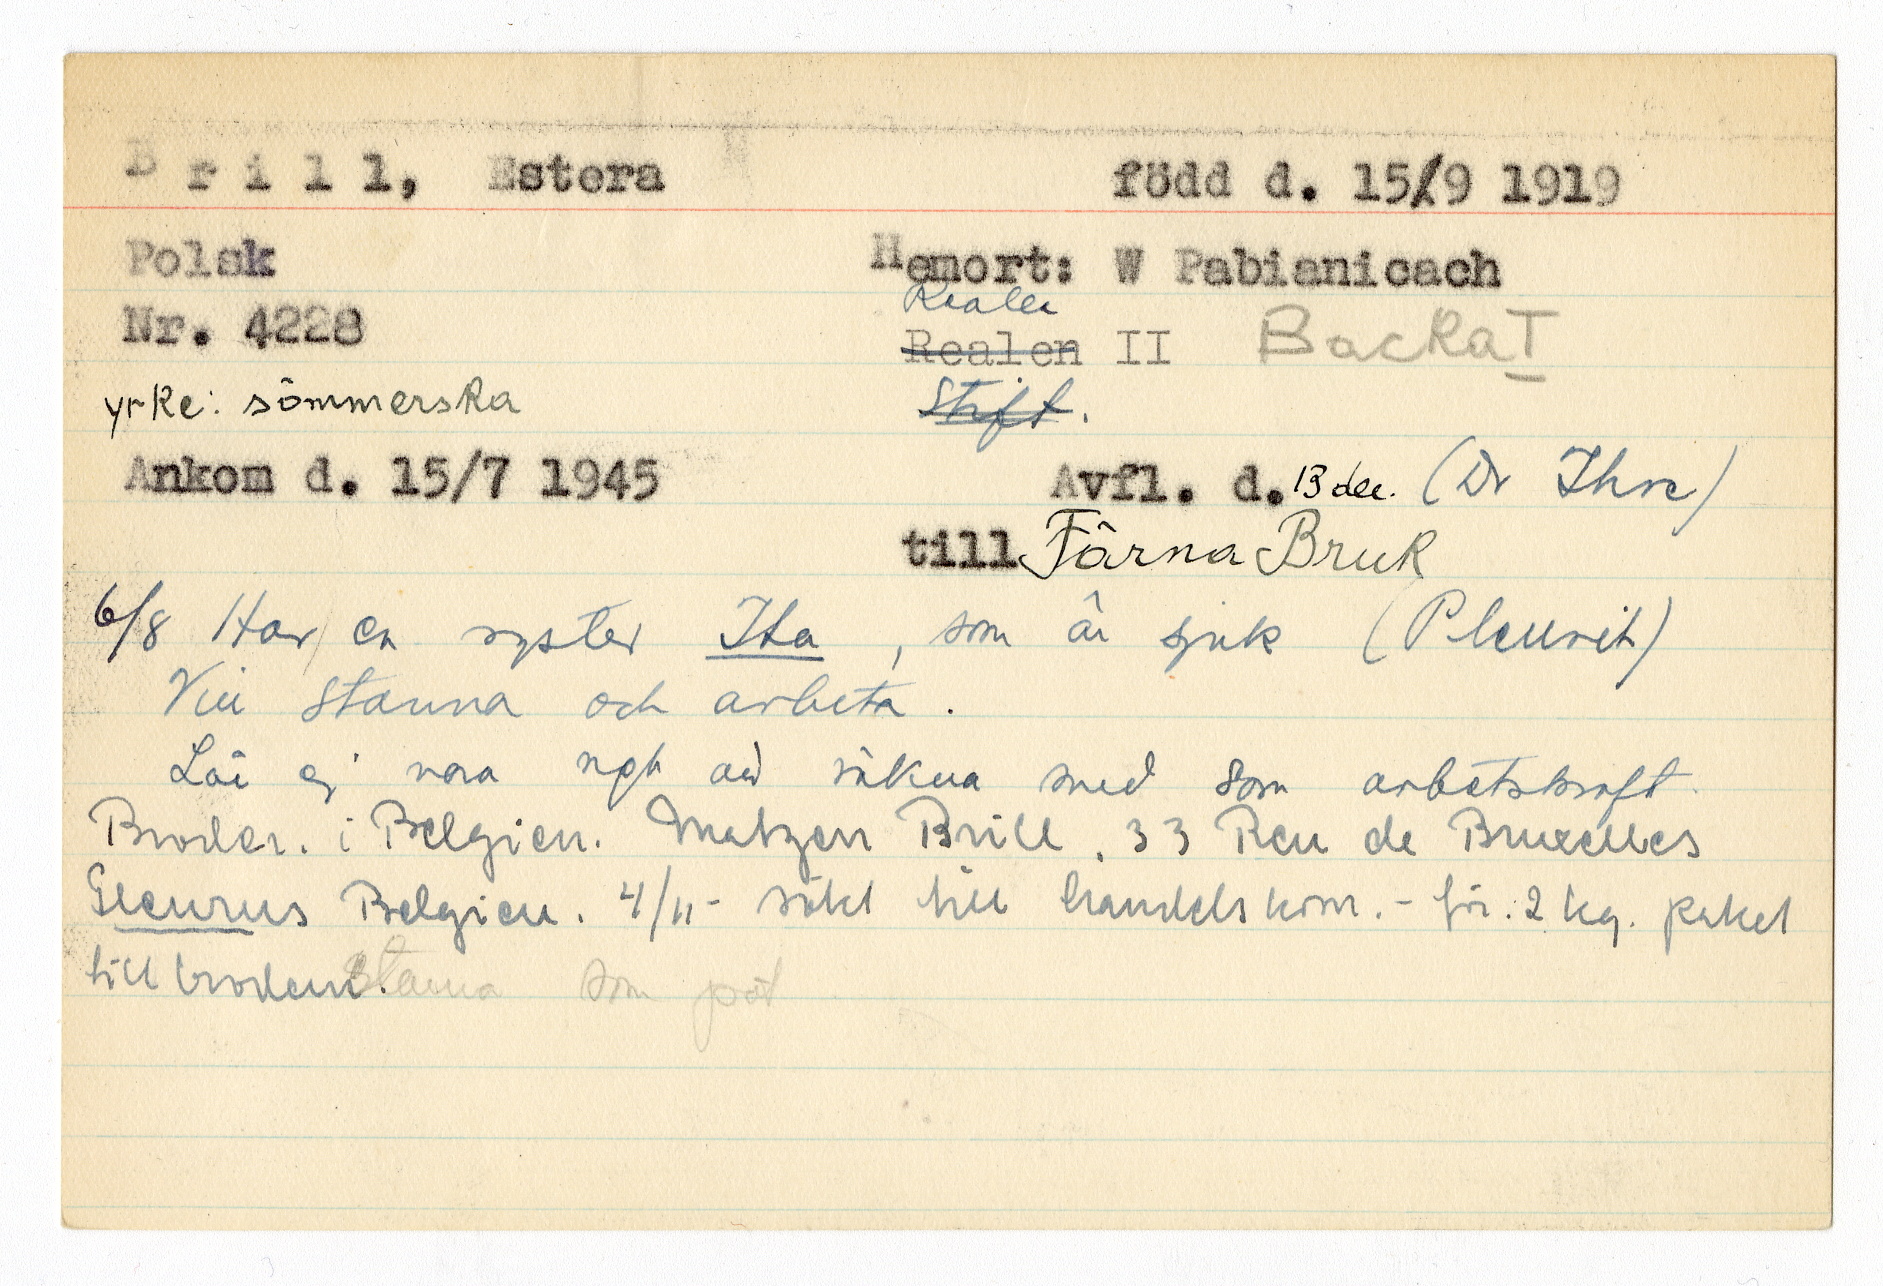 Brill, Estera född d. 15/9 1919
Polsk Hemort: W Pabianicach
Realen
Nr. 4228 Realen II Backa I
yrke: sömmerska Stift.
Ankom d. 15/7 1945 Avfl. d. 13 dec. (Dr Ihre)
till Färna Bruk
6/8 Har en syster Ita, som är sjuk (Pleurit)
Vill stanna och arbeta.
Lär ej vara ngt att räkna med som arbetskraft.
Broder. i Belgien. Matzen Brill, 33 Reu de Bruxelles
Belgien. 4/11- sökt till handelskom. - för. 2 kg. paket
till brodern.
Stanna som pat